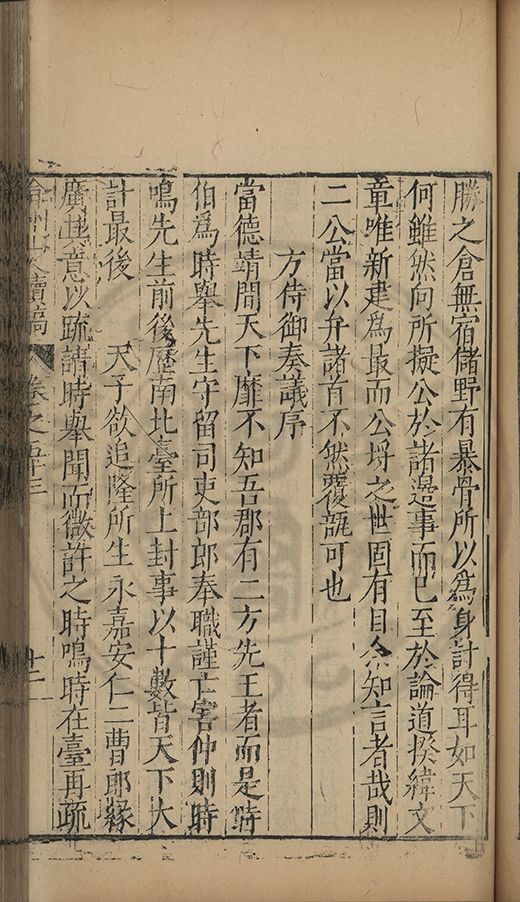 勝之倉無宿儲野有暴骨所以為身計得耳如天下
何雖然向所擬公於諸邊事而已至於論道揆緯文
章唯新建為最而公埒之世固有目余知言者哉則
二公當以弁諸首不然覆瓿可也
方侍御奏議序
當德靖間天下靡不知吾郡有二方先王者而是時
伯為時舉先生守留司吏部郎奉職謹亡害仲則時
鳴先生前後歷南北臺所上封事以十數皆天下大
計最後 天子欲追隆所生永嘉安仁二曹郎緣
廣越意以疏請時舉聞而微許之時鳴時在臺再疏
弇州山人續稿 卷之五十三 十二